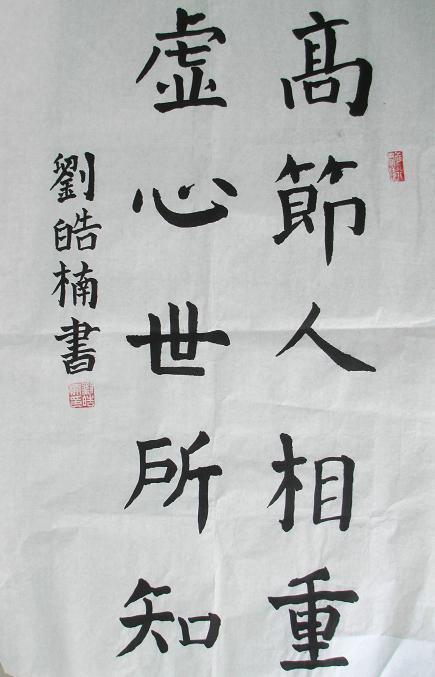 髙節人相重
虛心世所知
劉皓楠書